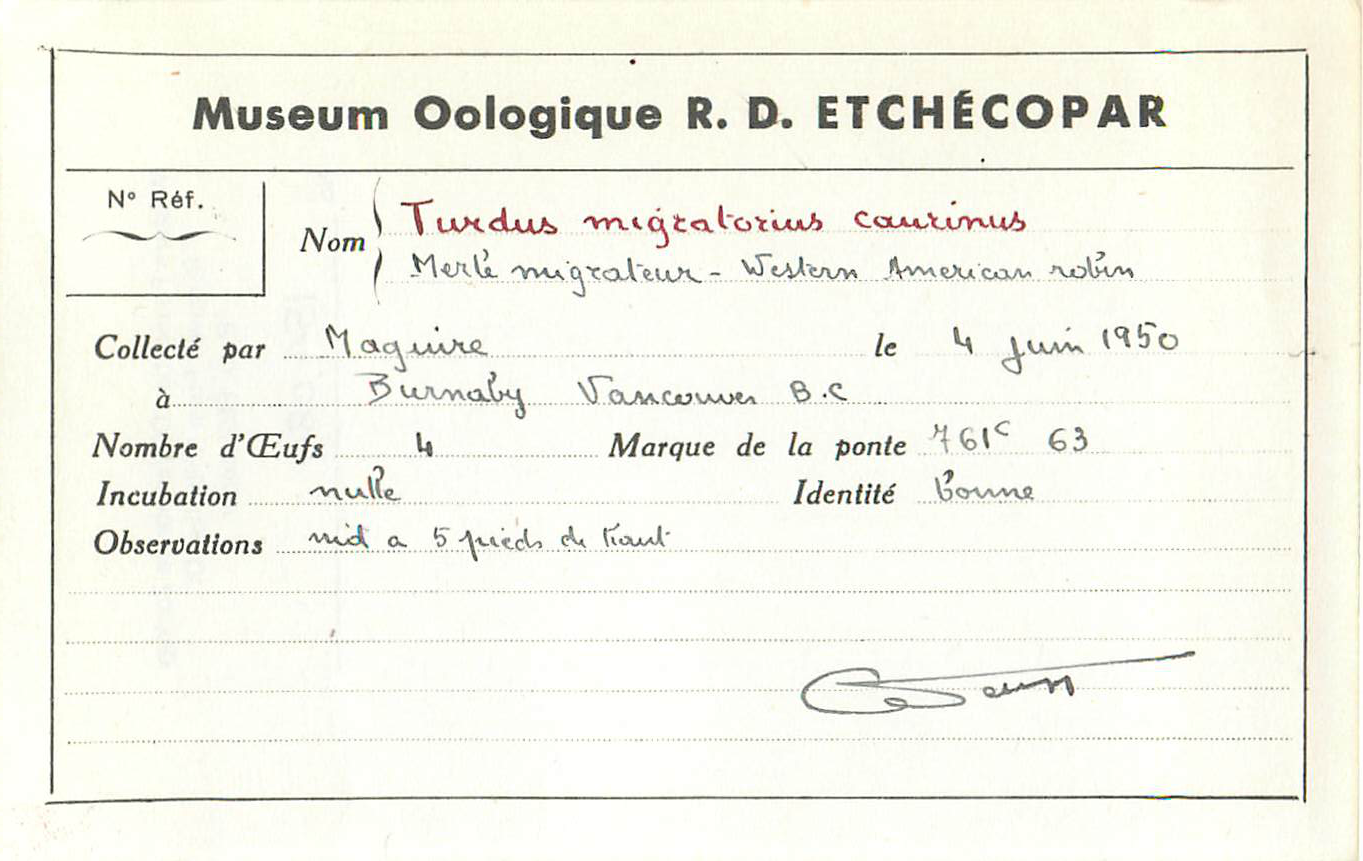 Museum Oologique R. D. ETCHÉCOPAR
N° Réf.
Nom
Turdus migratorius caurinus
Merle migrateur - Western American robin
Collecté par Maguire le 4 juin 1950
à Burnaby Vancouver B.C
Nombre d'Œufs 4 Marque de la ponte 761c 63
Incubation nulle Identité bonne
Observations nid a 5 pieds de haut